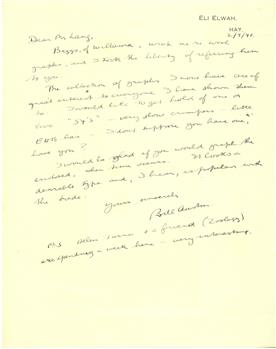 ELI ELWAH,
HAY.
2/7/41.
Dear Mr Lang,
Beggs, of Willurah, wrote me re wool
graphs, and I took the liberty of referring them
to you.
The collection of graphs I now have are of
great interest to everyone I have shown them
to. I would like to get hold of one of
two "54's" – very showy crimpers – little
Eli has – I don't suppose you have one,
have you?
I would be glad if you would graph the
enclosed, when time occurs. It looks a
desirable type and, I hear, is popular with
the trade.
Yours sincerely
Bill Austin
P.S. Helen & a friend (Zoology)
are spending a week here – very interesting.